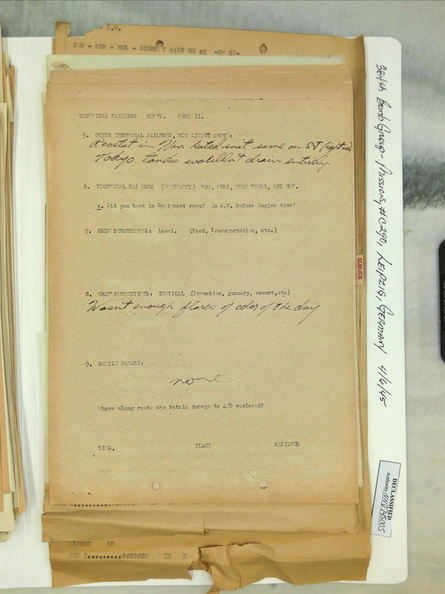 TECHNICAL FAILURES CON'T. PAGE II.
5. OTHER TECHNICAL FAILURES, NOT LISTED ABOVE:
Reostat in Nav heated suit some on
Tokyo tanks wouldn't drain entirely
6. TECHNICAL FAILURES (EQUIPMENT) WHO, WHAT, WHEN WHERE, AND WHY.
a. Did you test in Equipment room? In A.C. Before Engine time?
7. CREW SUGGESTIONS: Local. (Food, Transportation, etc.)
8. CREW SUGGESTIONS: TACTICAL (Formation, gunnery, escort, etc)
Wasn't enough flares of color of the day
9. BATTLE DAMAGE:
none
Where along route was battle damage to A/C recieved?
TIME, PLACE ALTITUDE
384th Bomb Group - Missions, #C290, LEIPZIG, GERMANY 4/6/45
DECLASSIFIED
Authority NND